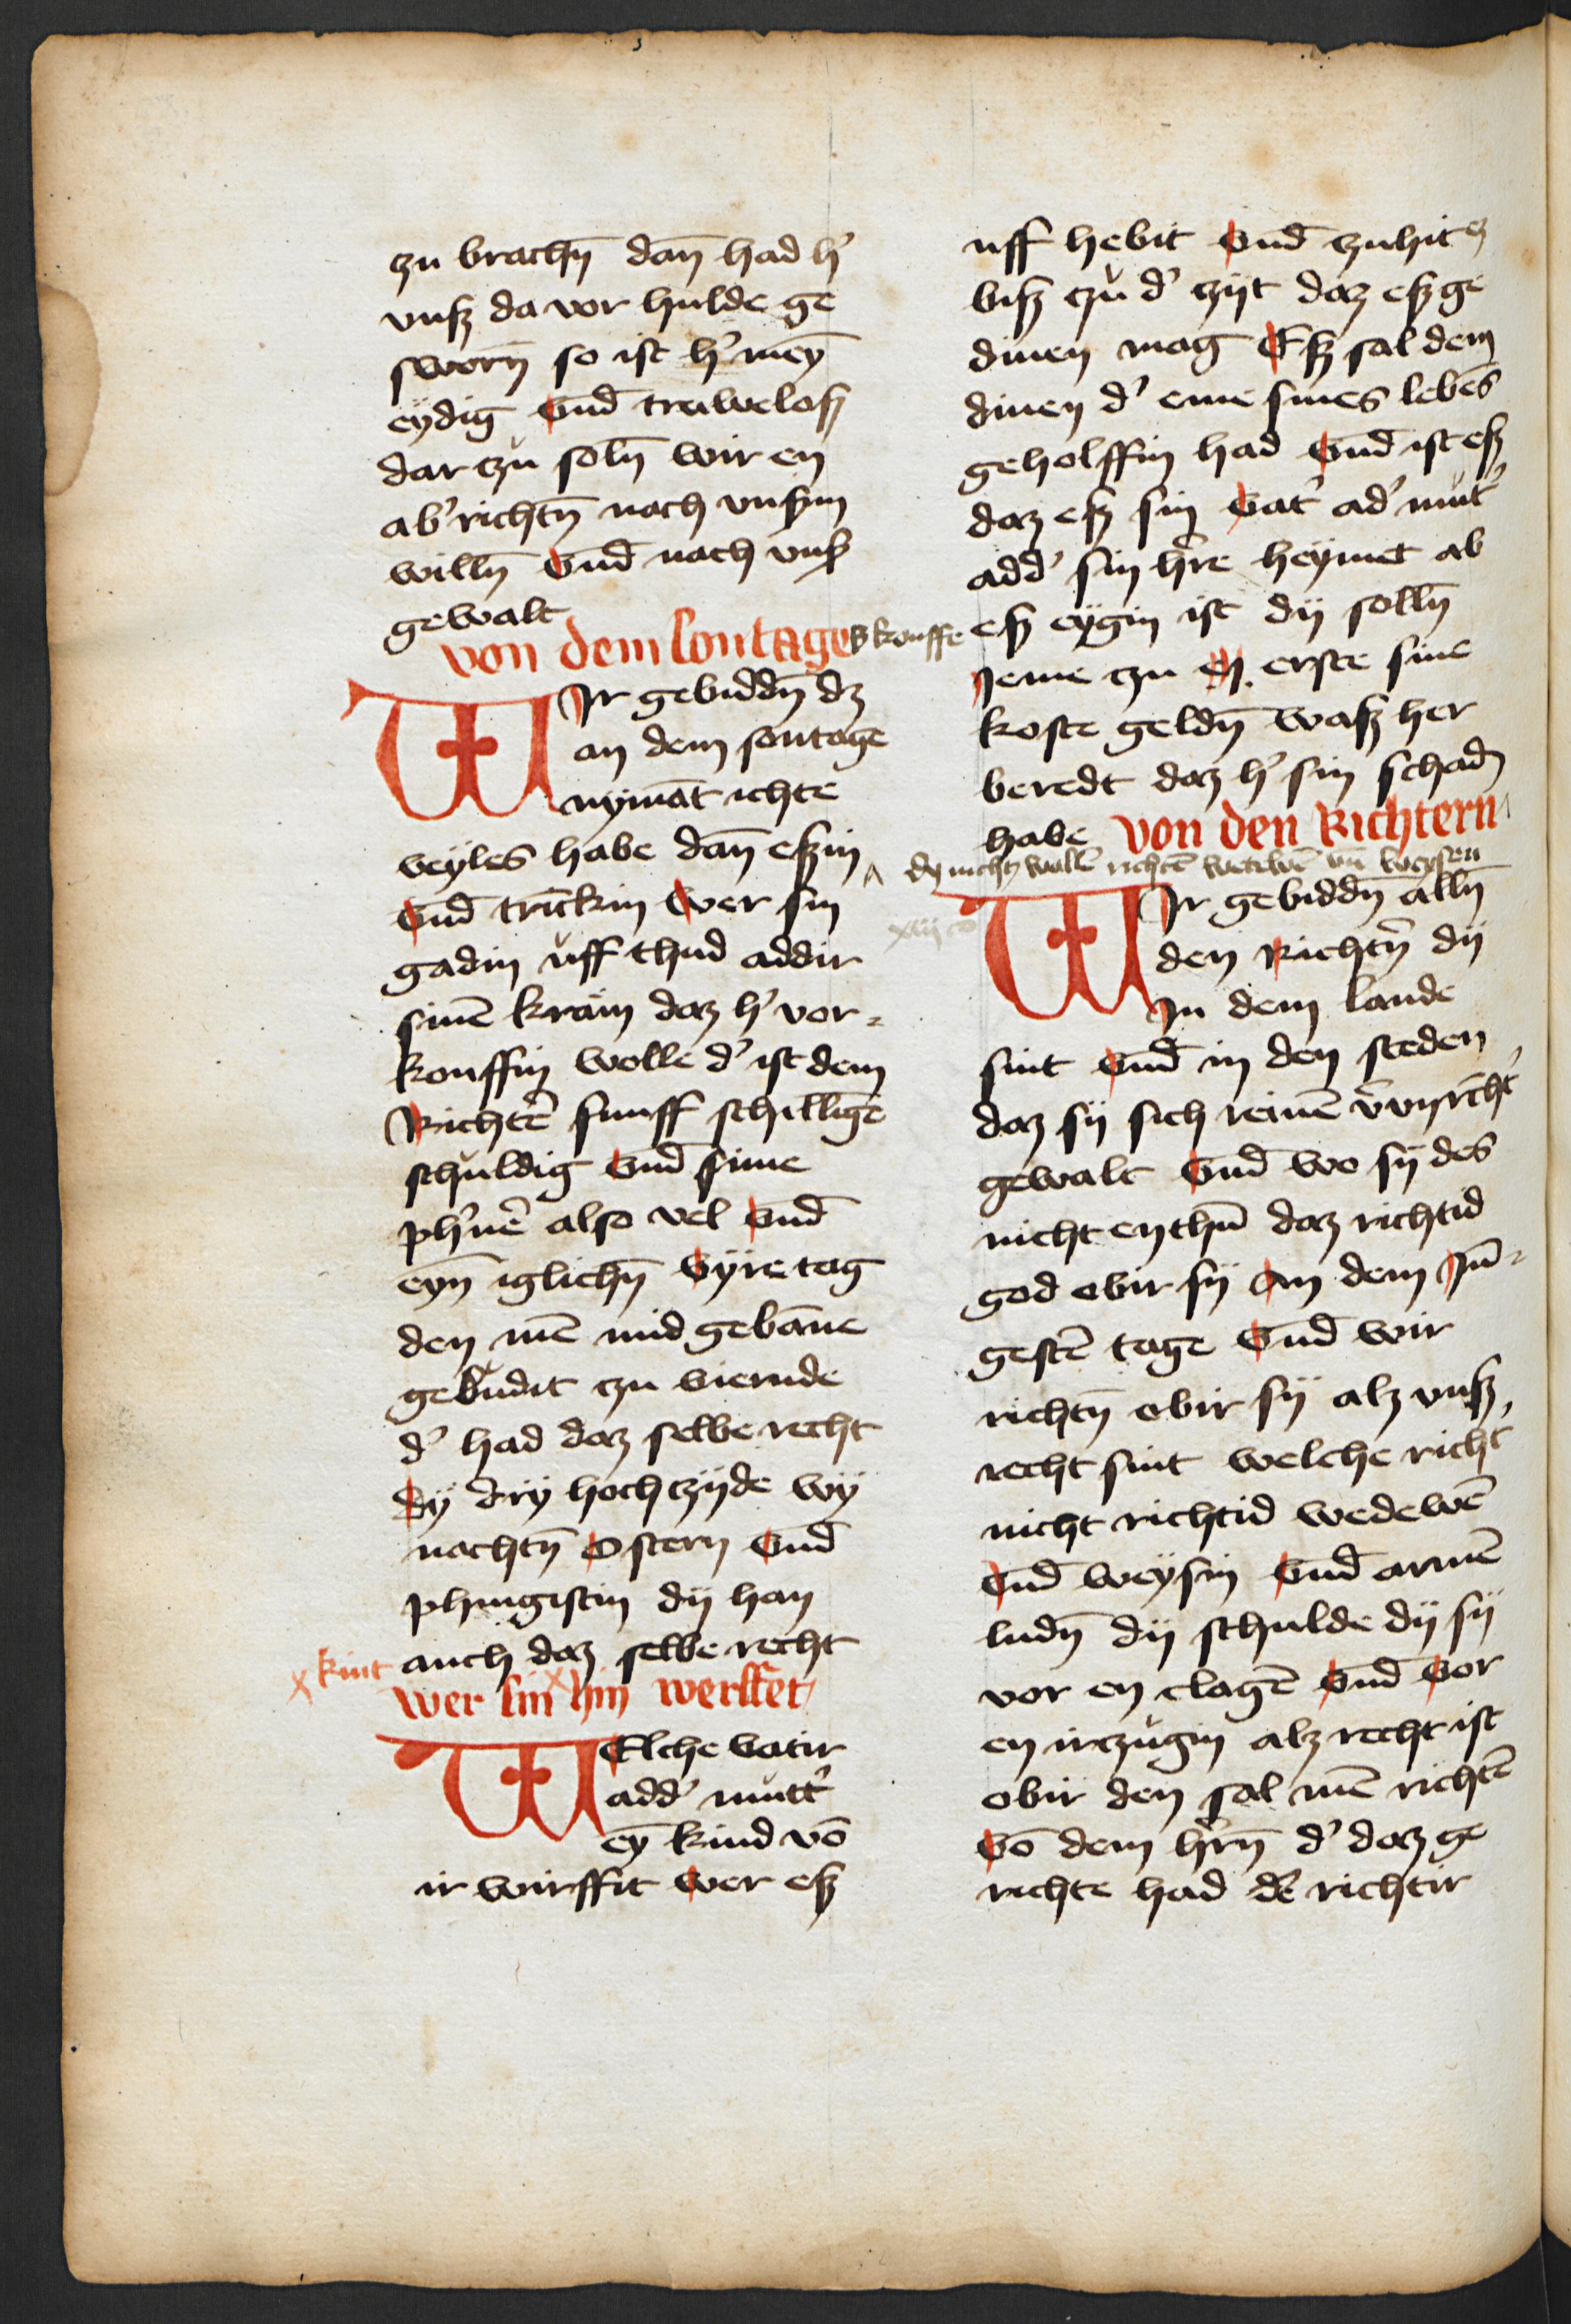 zu brachn̄ dan̄ had h'
vnsz da vor hulde ge
sworn̄ so ist h' meȳ
eydig vnd̄ truweloß
dar czu soln̄ wir en
ab' richtn̄ nach vnsm
willn̄ vnd̄ nach vnß
gewalt
von dem sontage v'kouffe
WIr gebiddn̄ dz
an dem sontage
nymāt ichte
veyles habe dan̄ eßin
vnd̄ trīckin wer sin
gadin uff thud addir
sinē kram daz h' vor=
kouffin wolle d' ist dem
Richtē sunff schillīge
schuldig vnd̄ sime
ph'nē also vel vnd̄
eyn̄ iglichn̄ vyre tag
den mē mid gebāne
gebudit zu vierude
d' had daz selbe recht
Dy dry hochczijde wy
nachtn̄ ostern vnd̄
phingistin dij han
auch daz selbe recht
x kint
wer sin x hin werffet
WElche vatir
add' mutt'
eȳ kind vō
ir wirffit wer eß
uff hebit vnd̄ zuhit ez
biß czu d' czijt daz eß ge
dinen mag Eß sal dem
dinen d' eme sines lebēs
geholffin had vnd̄ ist eß
daz eß sin vat' ad' mut'
add' sin h're heymet ab
eß eygin ist dij solln̄
Jeme czu ey. erste sine
koste geldn̄ waß her
beredt daz h' sin schadn̄
habe von den Richtern
dy nicht wollē richtē wetwē vn̄ weysen
xiij c°
WIr gebiddn̄ alln̄
den Richtn̄ dij
In dem lande
sint vnd̄ in den steden
daz sij sich reinē v̄nyrcht'
gewalt vnd̄ wo sij des
nicht enthū daz richtid
god obir sij An dem Jū=
gestē tage vnd̄ wir
richtn̄ obir sij alz vnß
recht sint welche richt'
nicht richtid wedewē
vnd̄ weysin vnd̄ armē
ludn̄ dij schulde dij sij
vor en clagē vnd̄ vor
en irczugin alz recht ist
obir den sal mē richtē
vō dem h'rn̄ d' daz ge
richte had dē richtir